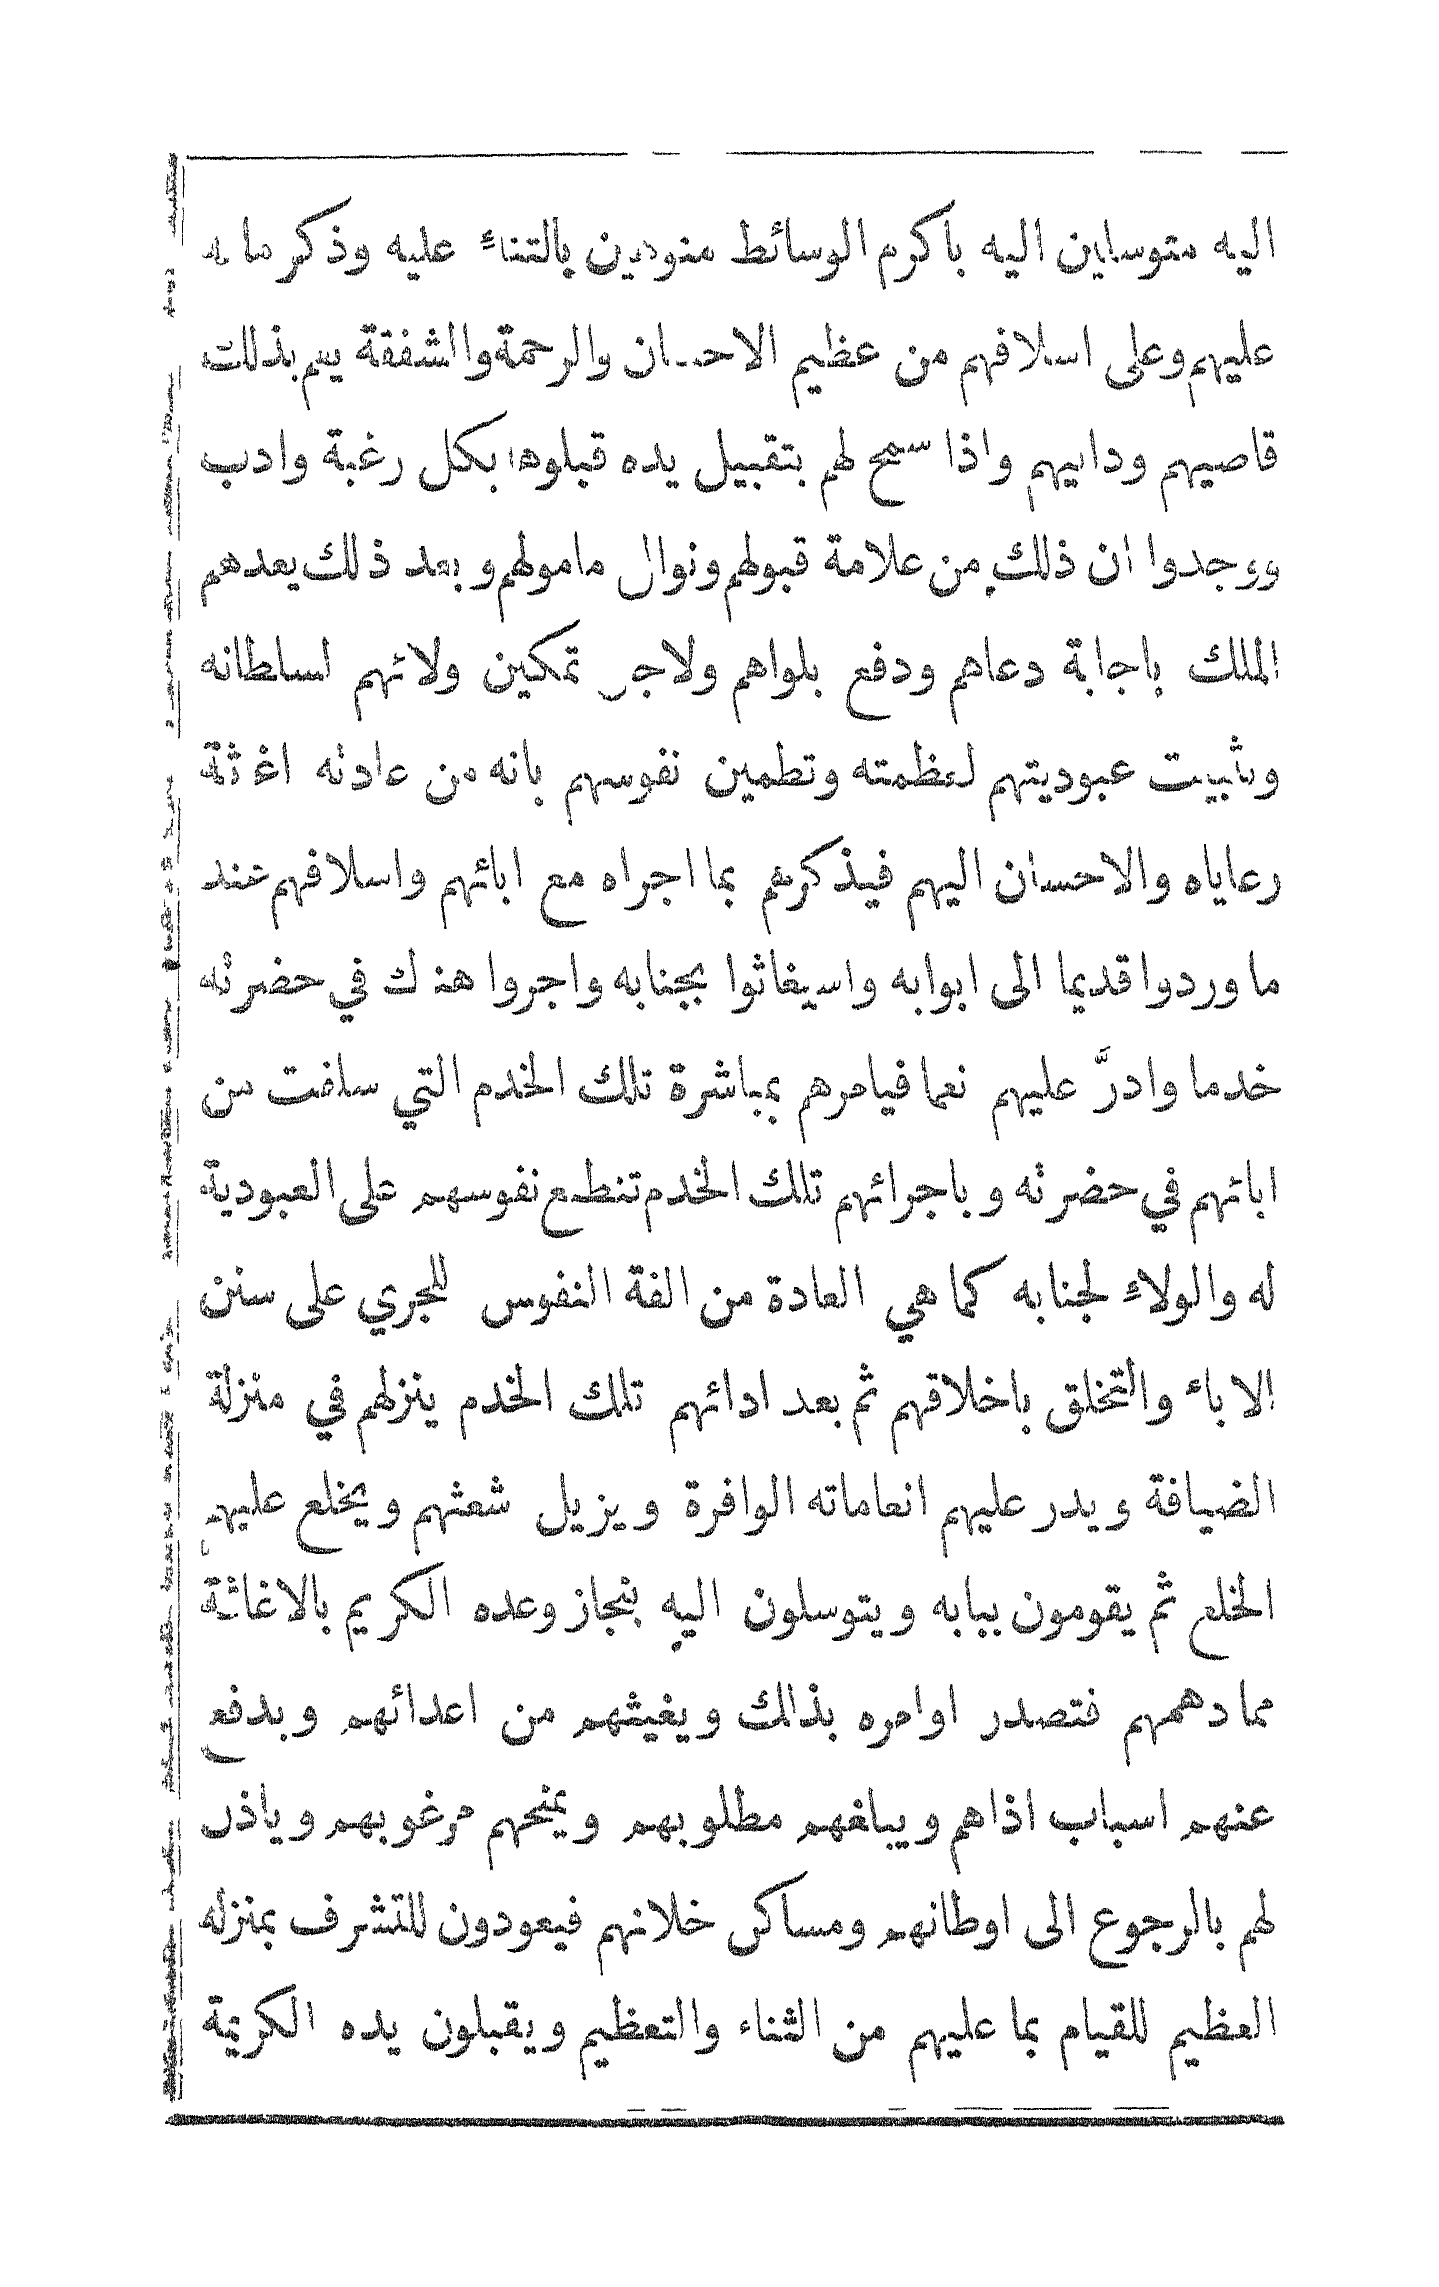 اليه متوسلين اليه باكرم الوسائط منودين بالثناء عليه وذكر ما له
عليهم وعلى اسلافهم من عظيم الاحسان والرحمة والشفقة يهم بذلك
قاصيهم ودانيهم واذا سمح لهم بتقبيل يده قبلوها بكل رغبة وادب
ووجدوا ان ذلك من علامة قبولهم ونوال مامولهم وبعد ذلك يعدهم
الملك باجابة دعاهم ودفع بلواهم ولاجل تمكين ولائهم لسلطانه
وتثبيت عبوديتهم لعظمته وتطمين نفوسهم بانه من عادته اغاثة
رعاياه والاحسان اليهم فيذكرهم بما اجراه مع ابائهم واسلافهم عند
ما وردوا قديما الى ابوابه واستغاثوا بجنابه واجروا هناك في حضرته
خدما وادرَّ عليهم نعما فيامرهم بمباشرة تلك الخدم التي سلفت من
ابائهم في حضرته وباجرائهم تلك الخدم تنطبع نفوسهم على العبودية
له والولاء لجنابه كما هي العادة من الفة النفوس للجري على سنن
الاباء والتخلق باخلاقهم ثم بعد ادائهم تلك الخدم ينزلهم في منزلة
الضيافة ويدر عليهم انعاماته الوافرة ويزيل شعثهم ويخلع عليهم
الخلع ثم يقومون ببابه ويتوسلون اليه بنجاز وعده الكريم بالاغاثة
مما دهمهم فتصدر اوامره بذلك ويغيثهم من اعدائهم ويدفع
عنهم اسباب اذاهم ويبلغهم مطلوبهم ويمنحهم مرغوبهم وياذن
لهم بالرجوع الى اوطانهم ومساكن خلانهم فيعودون للتشرف بمنزله
العظيم للقيام بما عليهم من الثناء والتعظيم ويقبلون يده الكريمة